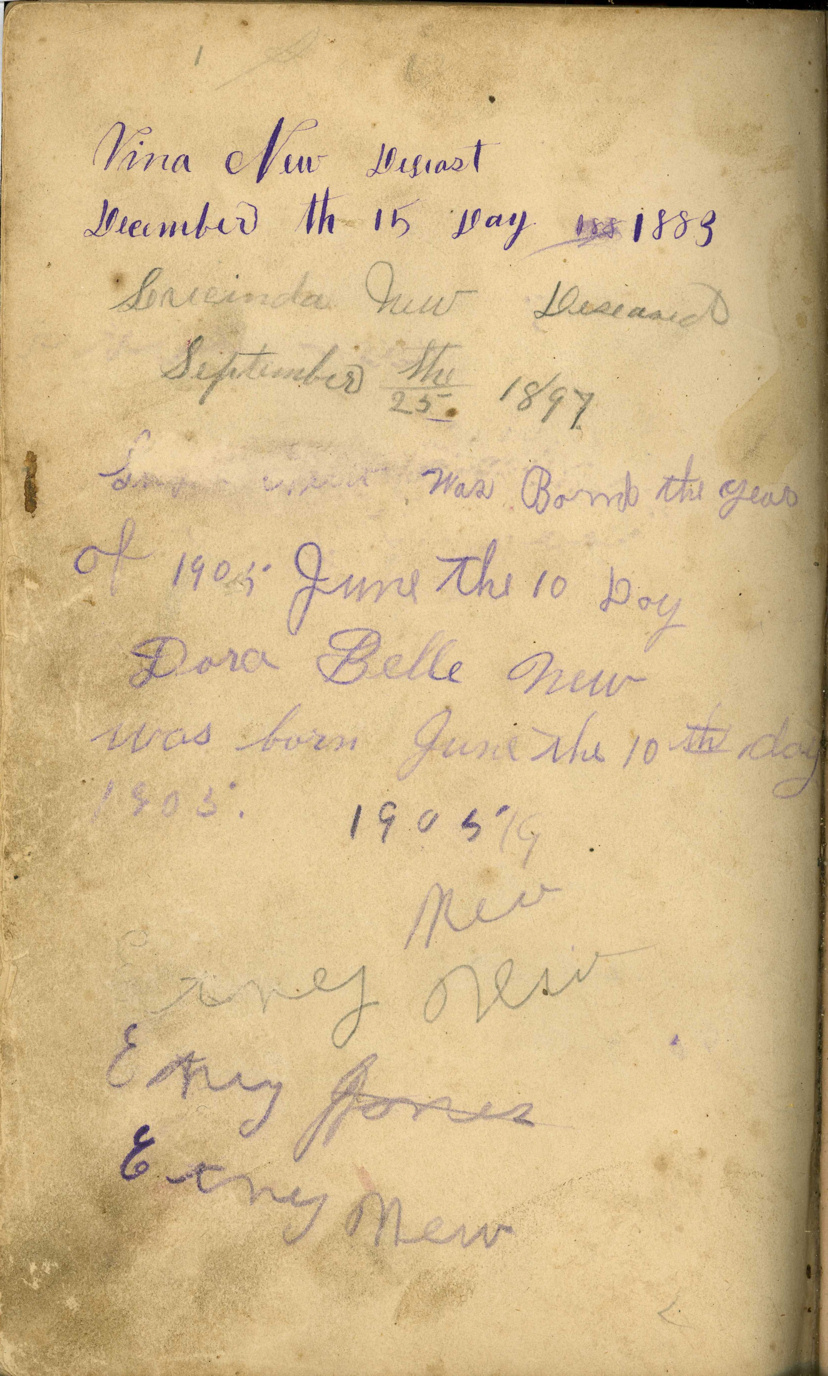 Vina New Deseast
December th 15 Day 188 1883
Lucinda New Deseased
September the 25. 1897
Was Bornd the year
of 1905 June the 10 Day
Dora Belle New
was born June the 10 th day
1905.
1905 19
New
New
Jones
New